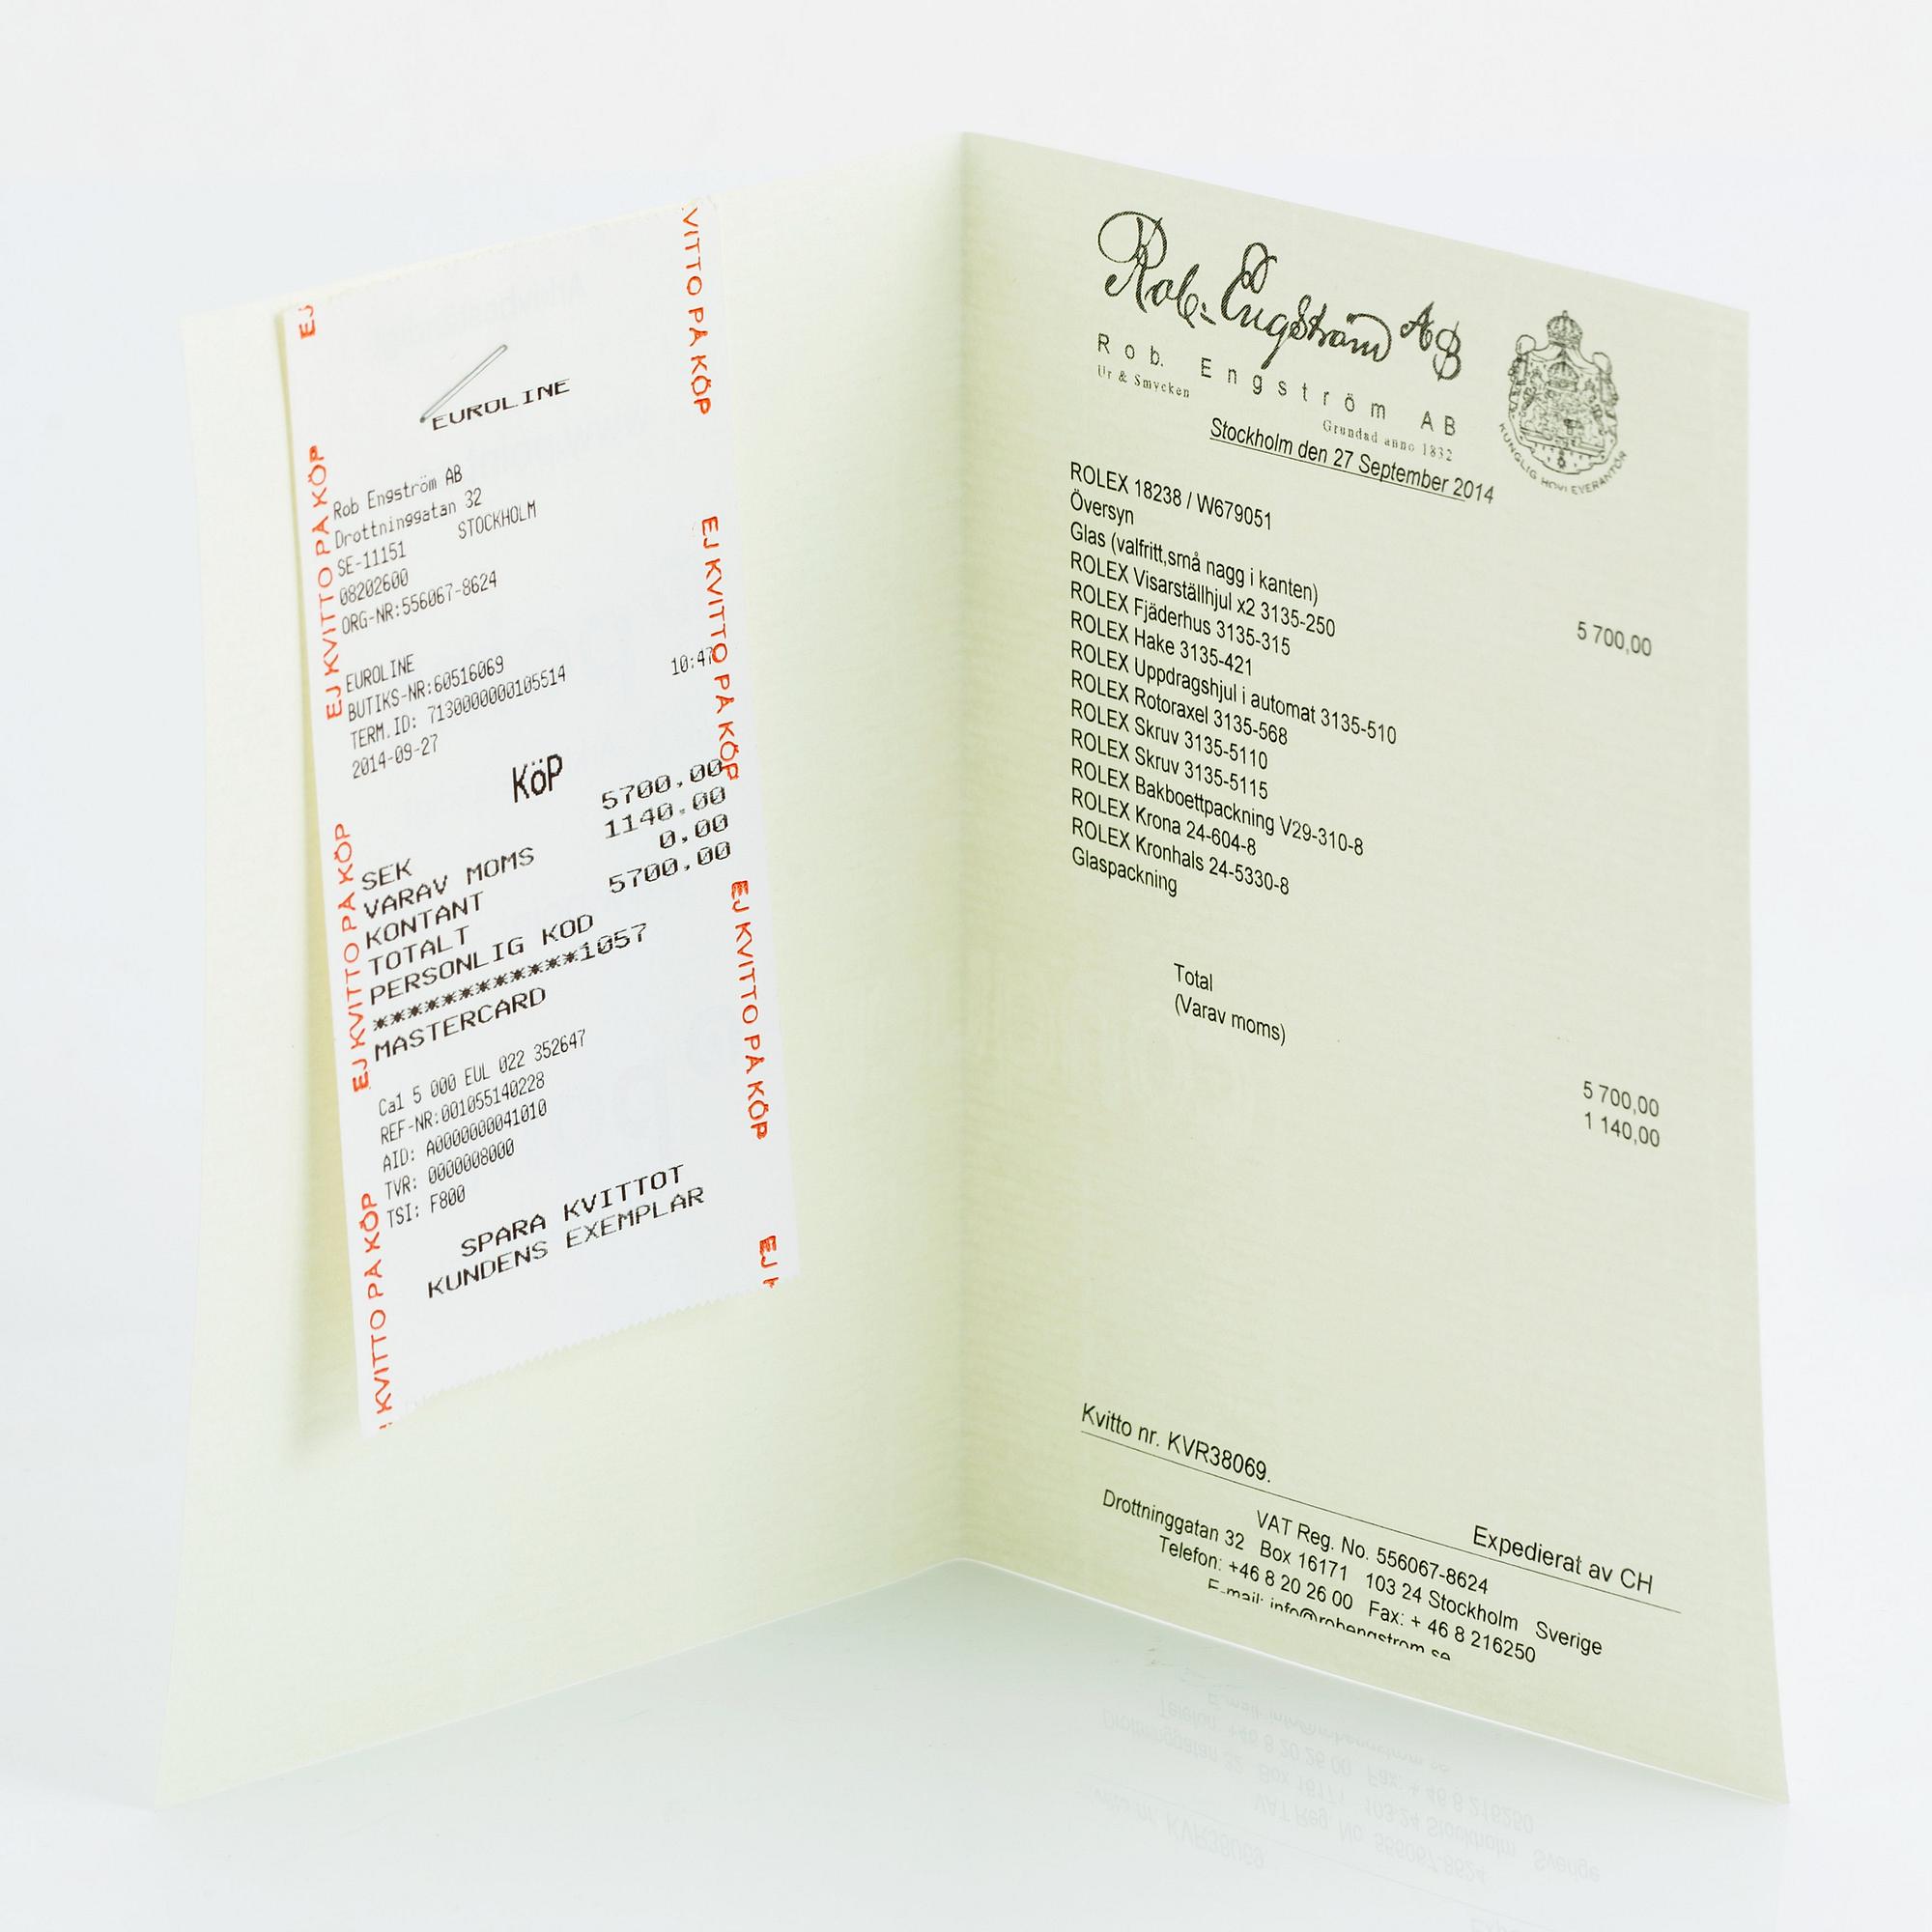 EUROLINE
Rob Engström AB
Drottninggatan 32
SE-11151 STOCKHOLM
08202600
ORG-NR:556067-8624
EUROLINE
BUTIKS-NR:60516069
TERM.ID: 7130000000105514
2014-09-27 10:47
KöP
SEK 5700.00
VARAV MOMS 1140.00
KONTANT 0.00
TOTALT 5700.00
PERSONLIG KOD
************1057
MASTERCARD
Ca1 5 000 EUL 022 352647
REF-NR:001055140228
AID: A0000000041010
TVR: 0000008000
TSI: F800
SPARA KVITTOT
KUNDENS EXEMPLAR
EJ
EJ KVITTO PÅ KÖP
EJ KVITTO PÅ KÖP
KVITTO PÅ KÖP
VITTO PÅ KÖP
EJ KVITTO PÅ KÖP
EJ KVITTO PÅ KÖP
EJ
Rob. Engström AB
Rob. Engström AB
Ur & Smycken
Grundad anno 1832
KUNGLIG HOVLEVERANTÖR
Stockholm den 27 September 2014
ROLEX 18238 / W679051
Översyn 5 700,00
Glas (valfritt,små nagg i kanten)
ROLEX Visarställhjul x2 3135-250
ROLEX Fjäderhus 3135-315
ROLEX Hake 3135-421
ROLEX Uppdragshjul i automat 3135-510
ROLEX Rotoraxel 3135-568
ROLEX Skruv 3135-5110
ROLEX Skruv 3135-5115
ROLEX Bakboettpackning V29-310-8
ROLEX Krona 24-604-8
ROLEX Kronhals 24-5330-8
Glaspackning
Total 5 700,00
(Varav moms) 1 140,00
Kvitto nr. KVR38069.
Expedierat av CH
VAT Reg. No. 556067-8624
Drottninggatan 32 Box 16171 103 24 Stockholm Sverige
Telefon: +46 8 20 26 00 Fax: + 46 8 216250
E-mail: info@robengstrom.se